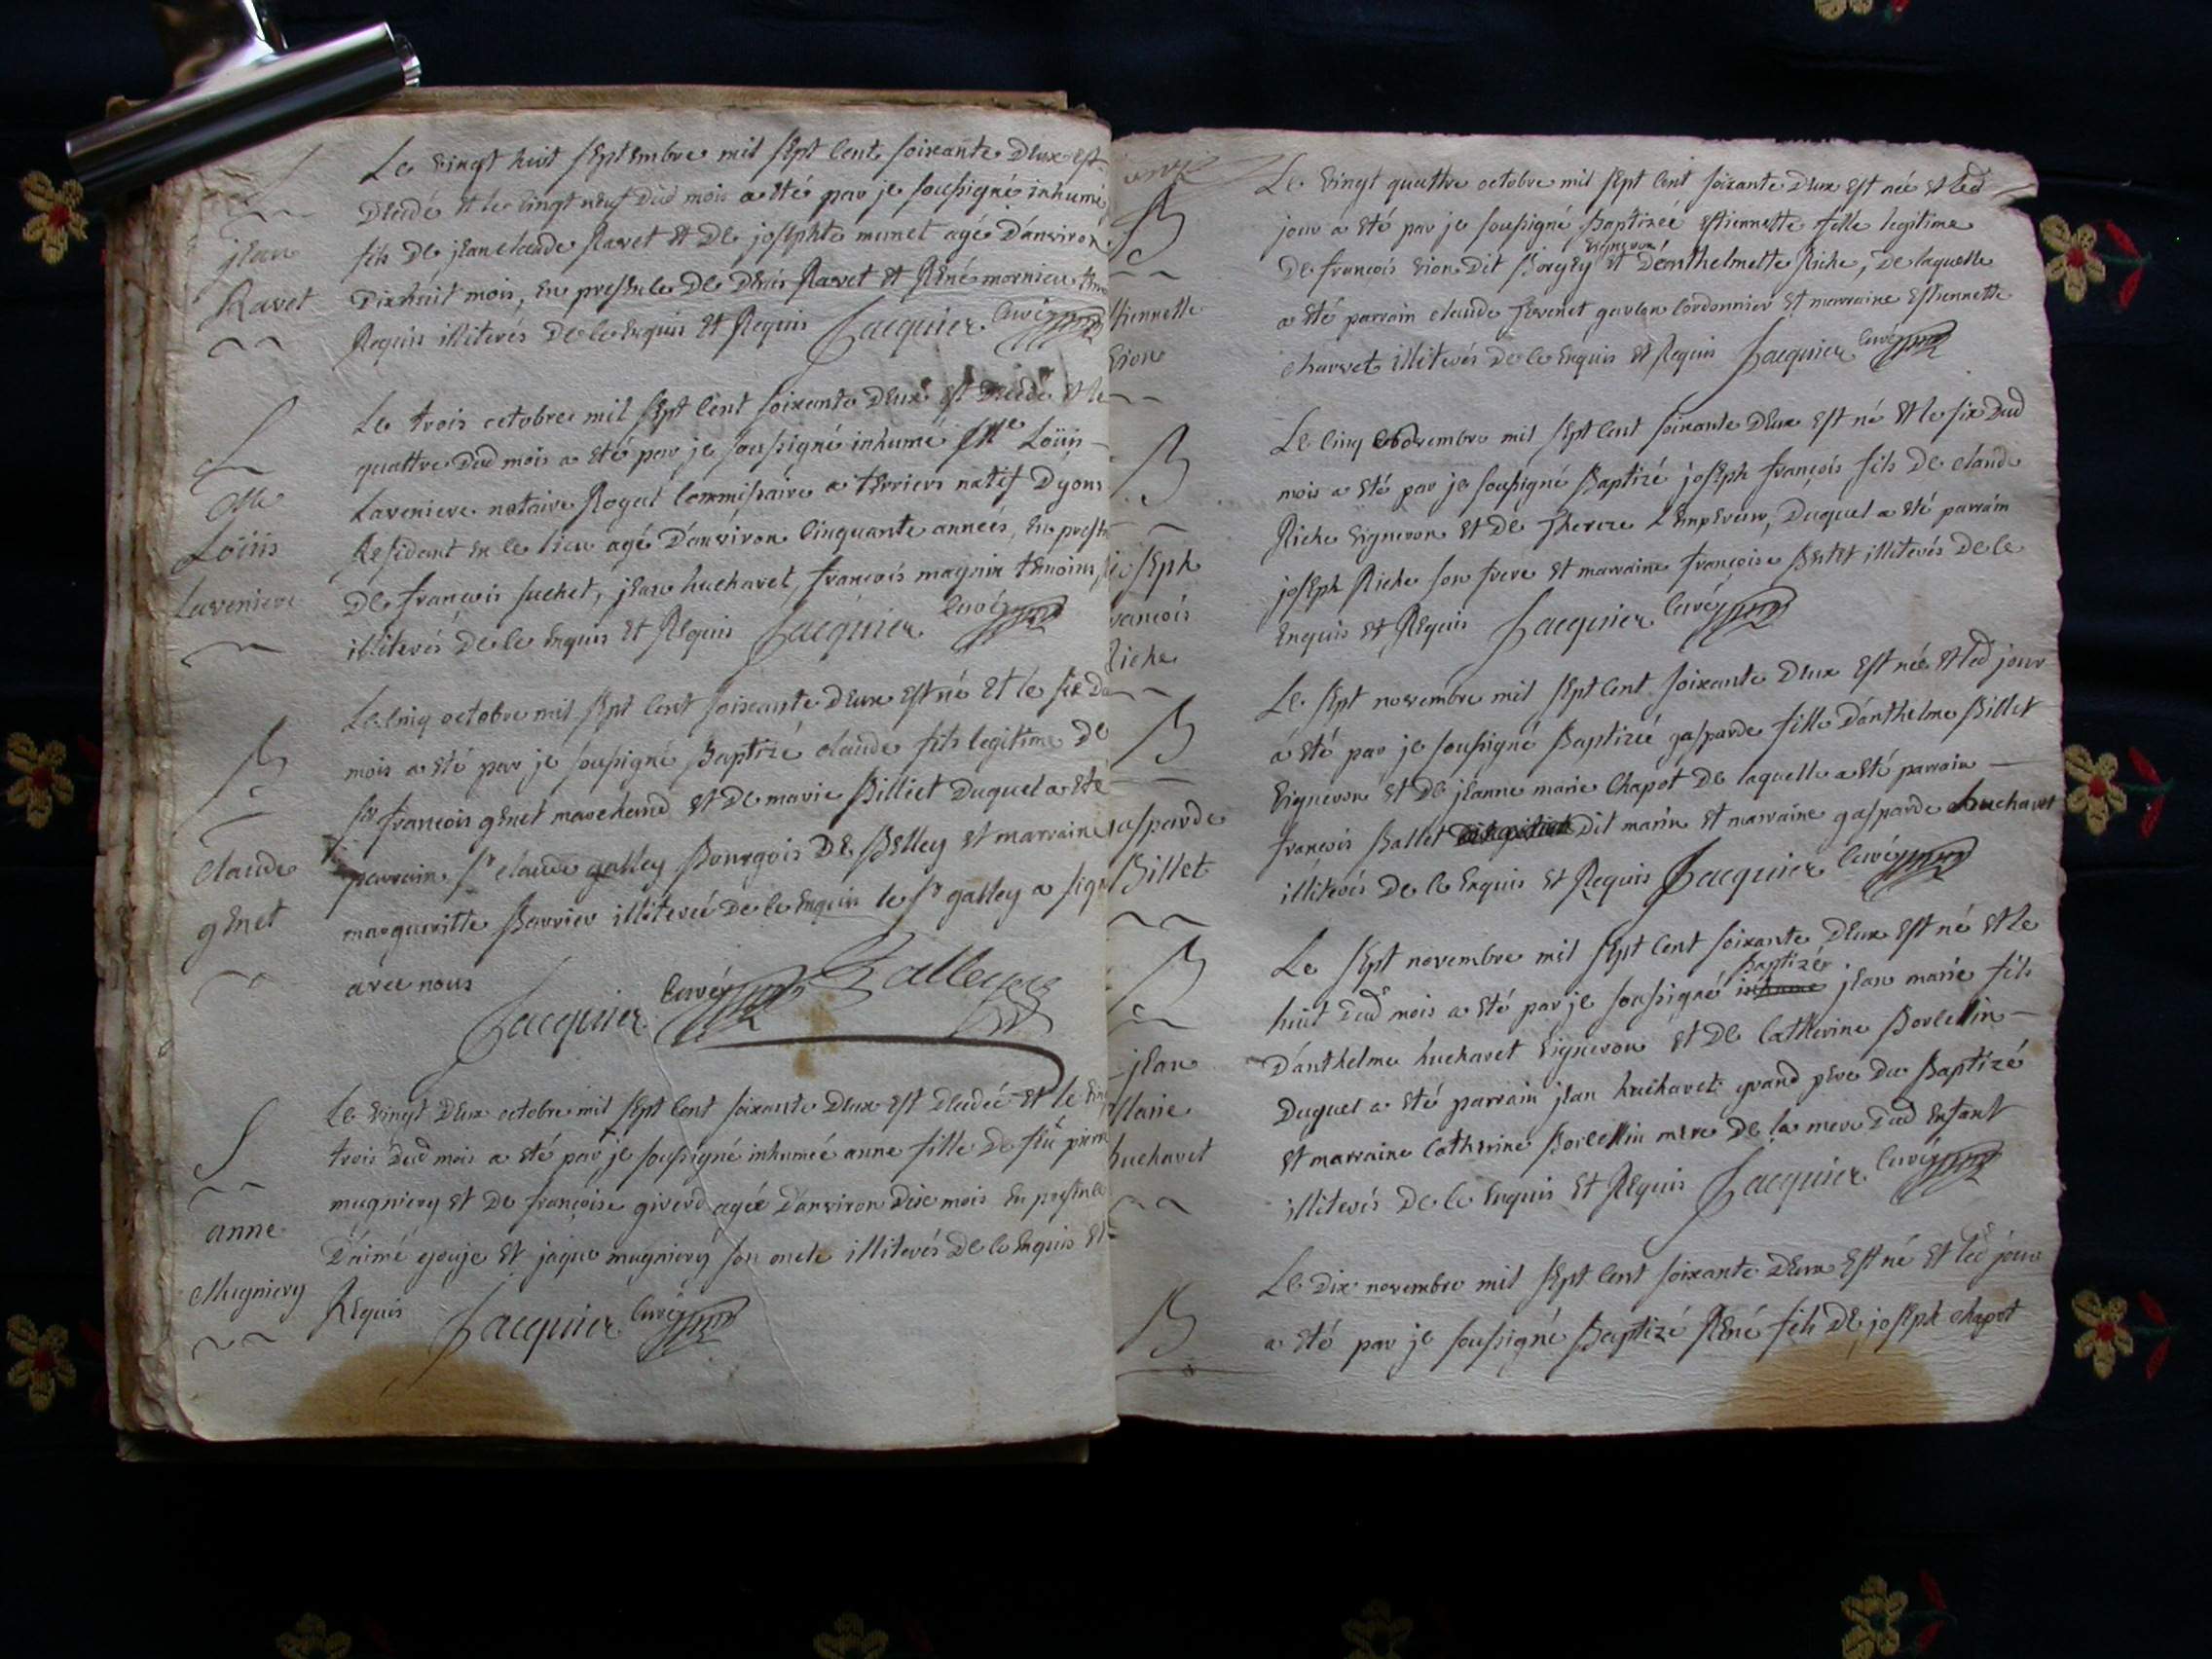 S
jean
Ravet
Le vingt huit septembre mil sept cent soixante deux est
decedé et le vingt neuf dud mois a eté par je soussigné inhumé
fils de jean claude Ravet et de josephte munet agé d'anviron
dixhuit mois, en presence de denis Ravet et René mornieu
Requis illiterés de ce enquis et Requis Jacquier curé
S
Me
Loüis
Laveniere
Le trois octobre mil sept cent soixante deux est decedé et le
quattre dud mois a eté par je soussigné inhumé Me Loüis
Laveniere notaire Royal commissaire a terriers natif d'yons
Residant en ce lieu agé d'anviron cinquante années, en prese
de francois suchet, jean huchavet, francois magnin temoins
illiterés de ce enquis et Requis Jacquier curé
B
claude
genet
Le cinq octobre mil sept cent soixante deux est né et le six du
mois a eté par je soussigné Baptizé claude fils legitime de
sr francois genet marchand et de marie Billiet duquel a eté
parrain sr claude galley Bourgois de Belley et marraine
margueritte Barrier illiterée de ce enquis le sr galley a sign
avec nous
Jacquier curé Galley
S
anne
Mugniery
Le vingt deux octobre mil sept cent soixante deux est decedeé et le vin
trois dud mois a eté par je soussigné inhumeé anne fille de feu pierre
mugniery et de françoise giverd ageé d'anviron dix mois en presence
d'aimé gouje et jaque mugniery son oncle illiterés de ce enquis et
Requis Jacquier curé
B
tiennette
vion
Le vingt quattre octobre mil sept cent soixante deux est née et led
jour a eté par je soussigné Baptizeé estiennette fille legitime
vigneron
de francois vion dit Borgey et d'enthelmette Riche, de laquelle
a eté parrain claude Thevenet garcon cordonnier et marraine estiennette
charvet illiterés de ce enquis et Requis Jacquier curé
B
joseph
rancois
Riche
Le cinq novembre mil sept cent soixante deux est né et le six dud
mois a eté par je soussigné Baptizé joseph françois fils de claude
Riche vigneron et de Thereze L'empereur, duquel a eté parrain
joseph Riche son frere et marraine francoise Betet illiterés de ce
enquis et Requis Jacquier curé
B
asparde
Billet
Le sept novembre mil sept cent soixante deux est née et led jour
a eté par je soussigné Baptizeé gasparde fille d'anthelme Billet
vigneron et de jeanne marie chapot de laquelle a eté parrain
françois Ballet dit marin et marraine gasparde huchavet
illiterés de ce enquis et Requis Jacquier curé
B
jean
Marie
huchavet
Le sept novembre mil sept cent soixante deux est né et le
Baptizé
huit dud mois a eté par je soussigné inhumé jean marie fils
d'anthelme huchavet vigneron et de catherine Borcellin
duquel a eté parrain jean huchavet grand pere du Baptizé
et marraine catherine Borcellin mere de la mere dud enfant
illiterés de ce enquis et Requis Jacquier curé
B
Le dix novembre mil sept cent soixante deux est né et led jour
a eté par je soussigné Baptizé René fils de joseph chapot